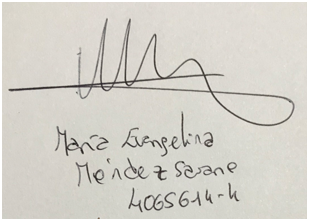 María Evangelina
Méndez Seoane
4065614-4